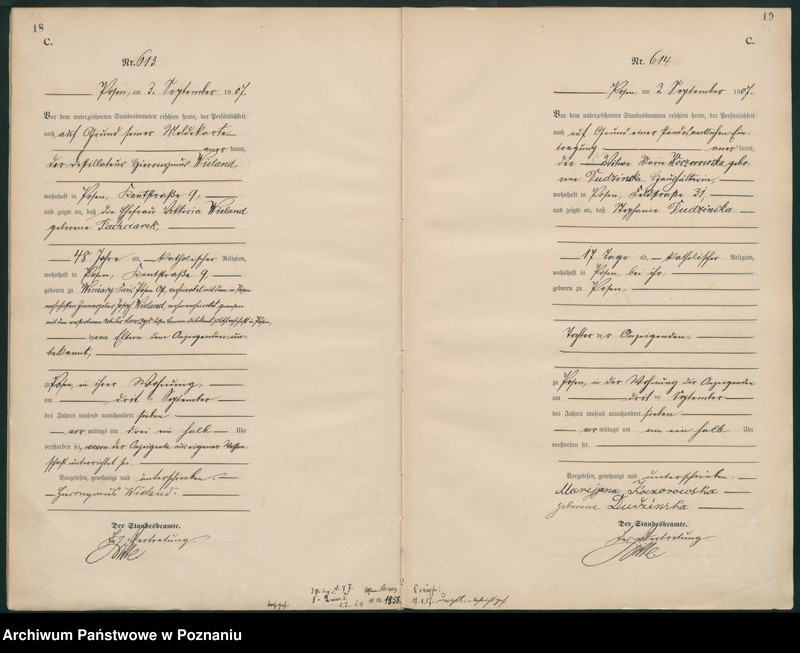 18
C.
Nr. 613.
Posen, am 3. September 1907.
Vor dem unterzeichneten Standesbeamten erschien heute, der Persönlichkeit
nach auf Grund seiner Meldekarte
anerkannt,
der Destillateur Hieronymus Wieland,
wohnhaft in Posen, Kantstraße 9,
und zeigte an, daß die Ehefrau Viktoria Wieland
geborene
48 Jahre alt, katholischer Religion,
wohnhaft in Posen, Kantstraße 9,
geboren zu Winiary, Kreis Posen Ost, verheiratet mit dem in Posen
Wieland,
mit dem verstorbenen
deren Eltern dem Anzeigenden unbekannt,
zu Posen, in ihrer Wohnung,
am dritten September
des Jahres tausend neunhundert sieben
vormittags um drei ein halb Uhr
verstorben sei, wovon der Anzeigende aus eigener Wissenschaft
unterrichtet sei.
Vorgelesen, genehmigt und unterschrieben.
Hieronymus Wieland.
Der Standesbeamte.
In Vertretung
19
C.
Nr. 614.
Posen, am 3. September 1907.
Vor dem unterzeichneten Standesbeamten erschien heute, der Persönlichkeit
nach auf Grund einer standesamtlichen Eintragung
anerkannt,
die Witwe Maria Koczorowska geborene
Dudzinska, Haushälterin,
wohnhaft in Posen, Feldstraße 31,
und zeigte an, daß Stephanie Dudzinska
17 Tage alt, katholischer Religion,
wohnhaft in Posen, bei ihr
geboren zu Posen,
Tochter der Anzeigenden,
zu Posen, in der Wohnung der Anzeigenden
am dritten September
des Jahres tausend neunhundert sieben
vormittags um ein ein halb Uhr
verstorben sei.
Vorgelesen, genehmigt und unterschrieben.
Maryjana Koczorowska
geborene Dudzinska
Der Standesbeamte.
In Vertretung
1858
Archiwum Państwowe w Poznaniu